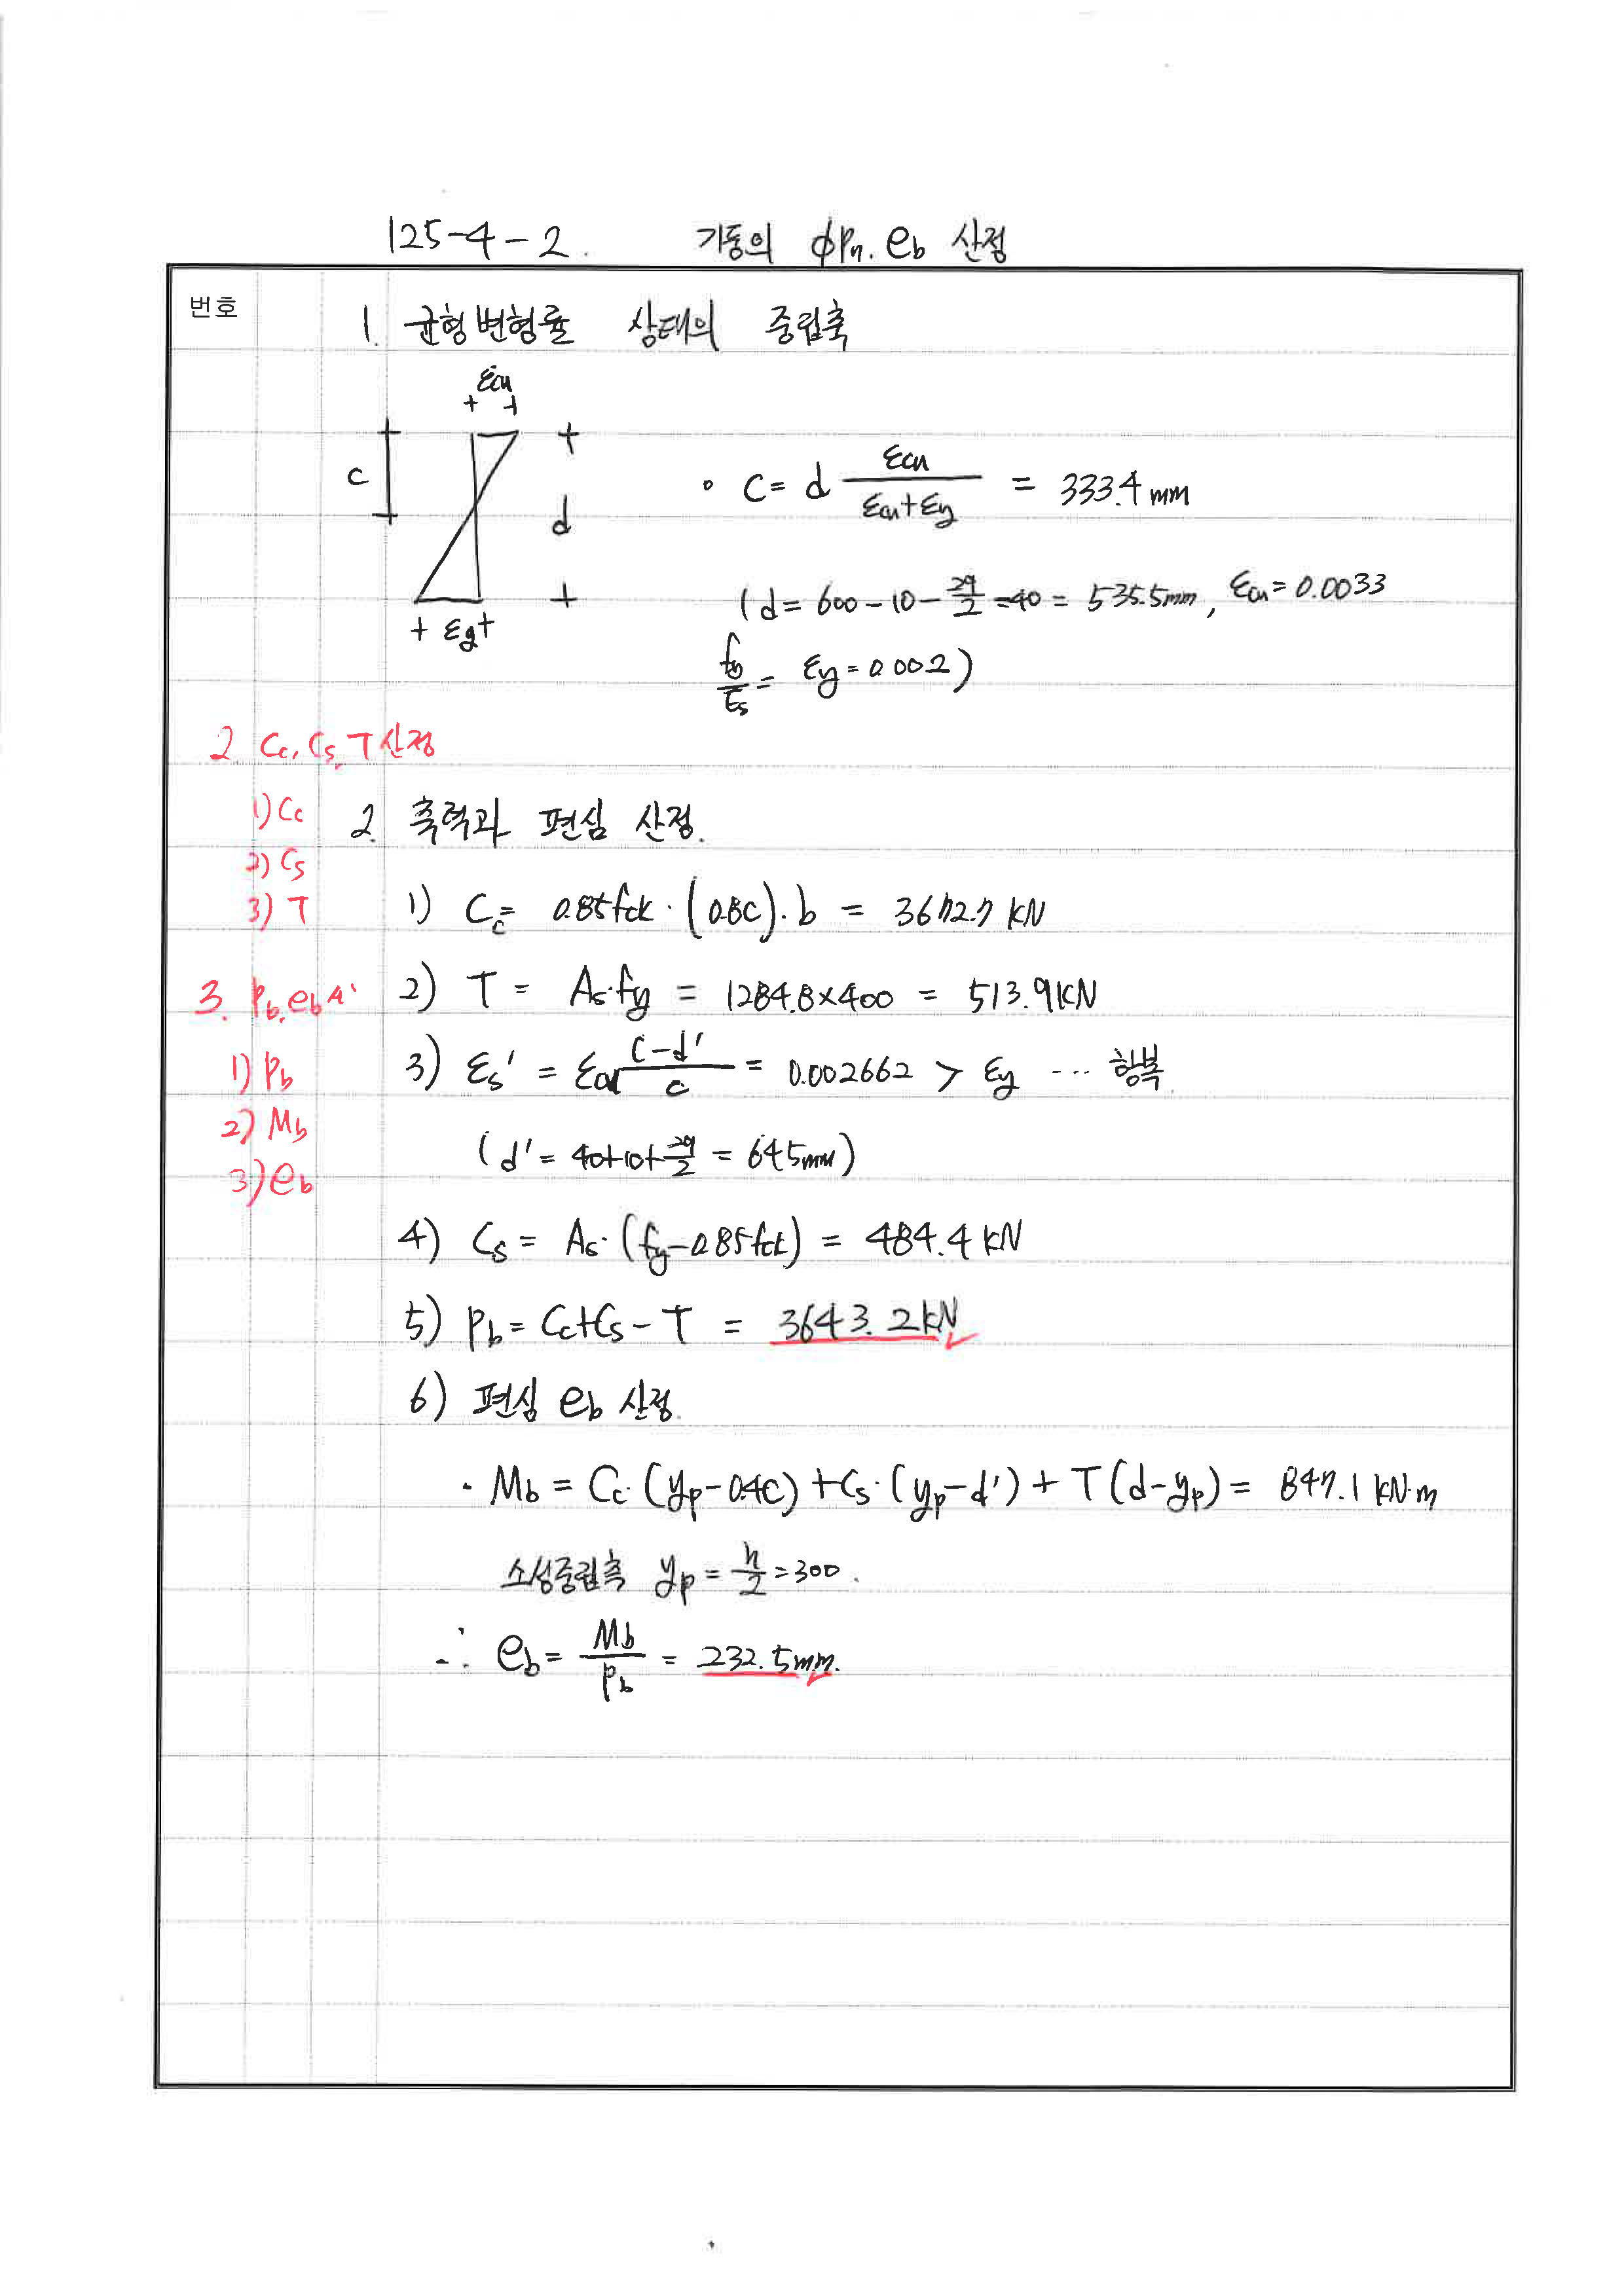 125-4-2. 기둥의 ϕPn. eb 산정
번호
1. 균형변형률 상태의 중립축
εcu
c
d
εy
• c = d εcu / (εcu+εy) = 333.4mm
(d = 600-10-29/2-40 = 535.5mm, εcu = 0.0033
fy/Es = εy = 0.002)
2. Cc, Cs, T 산정
1) Cc
2) Cs
3) T
3. Pb, eb
1) Pb
2) Mb
3) eb
2. 축력과 편심 산정.
1) Cc = 0.85fck·(0.8c)·b = 3672.7 kN
2) T = As·fy = 1284.8×400 = 513.9kN
3) εs' = εcu (c-d')/c = 0.002662 > εy … 항복
(d' = 40+10+29/2 = 64.5mm)
4) Cs = As·(fy-0.85fck) = 484.4 kN
5) Pb = Cc+Cs-T = 3643.2kN
6) 편심 eb 산정.
· Mb = Cc·(yp-0.4c)+Cs·(yp-d')+T(d-yp) = 847.1 kN·m
소성중립축 yp = h/2 = 300.
∴ eb = Mb/Pb = 232.5mm.